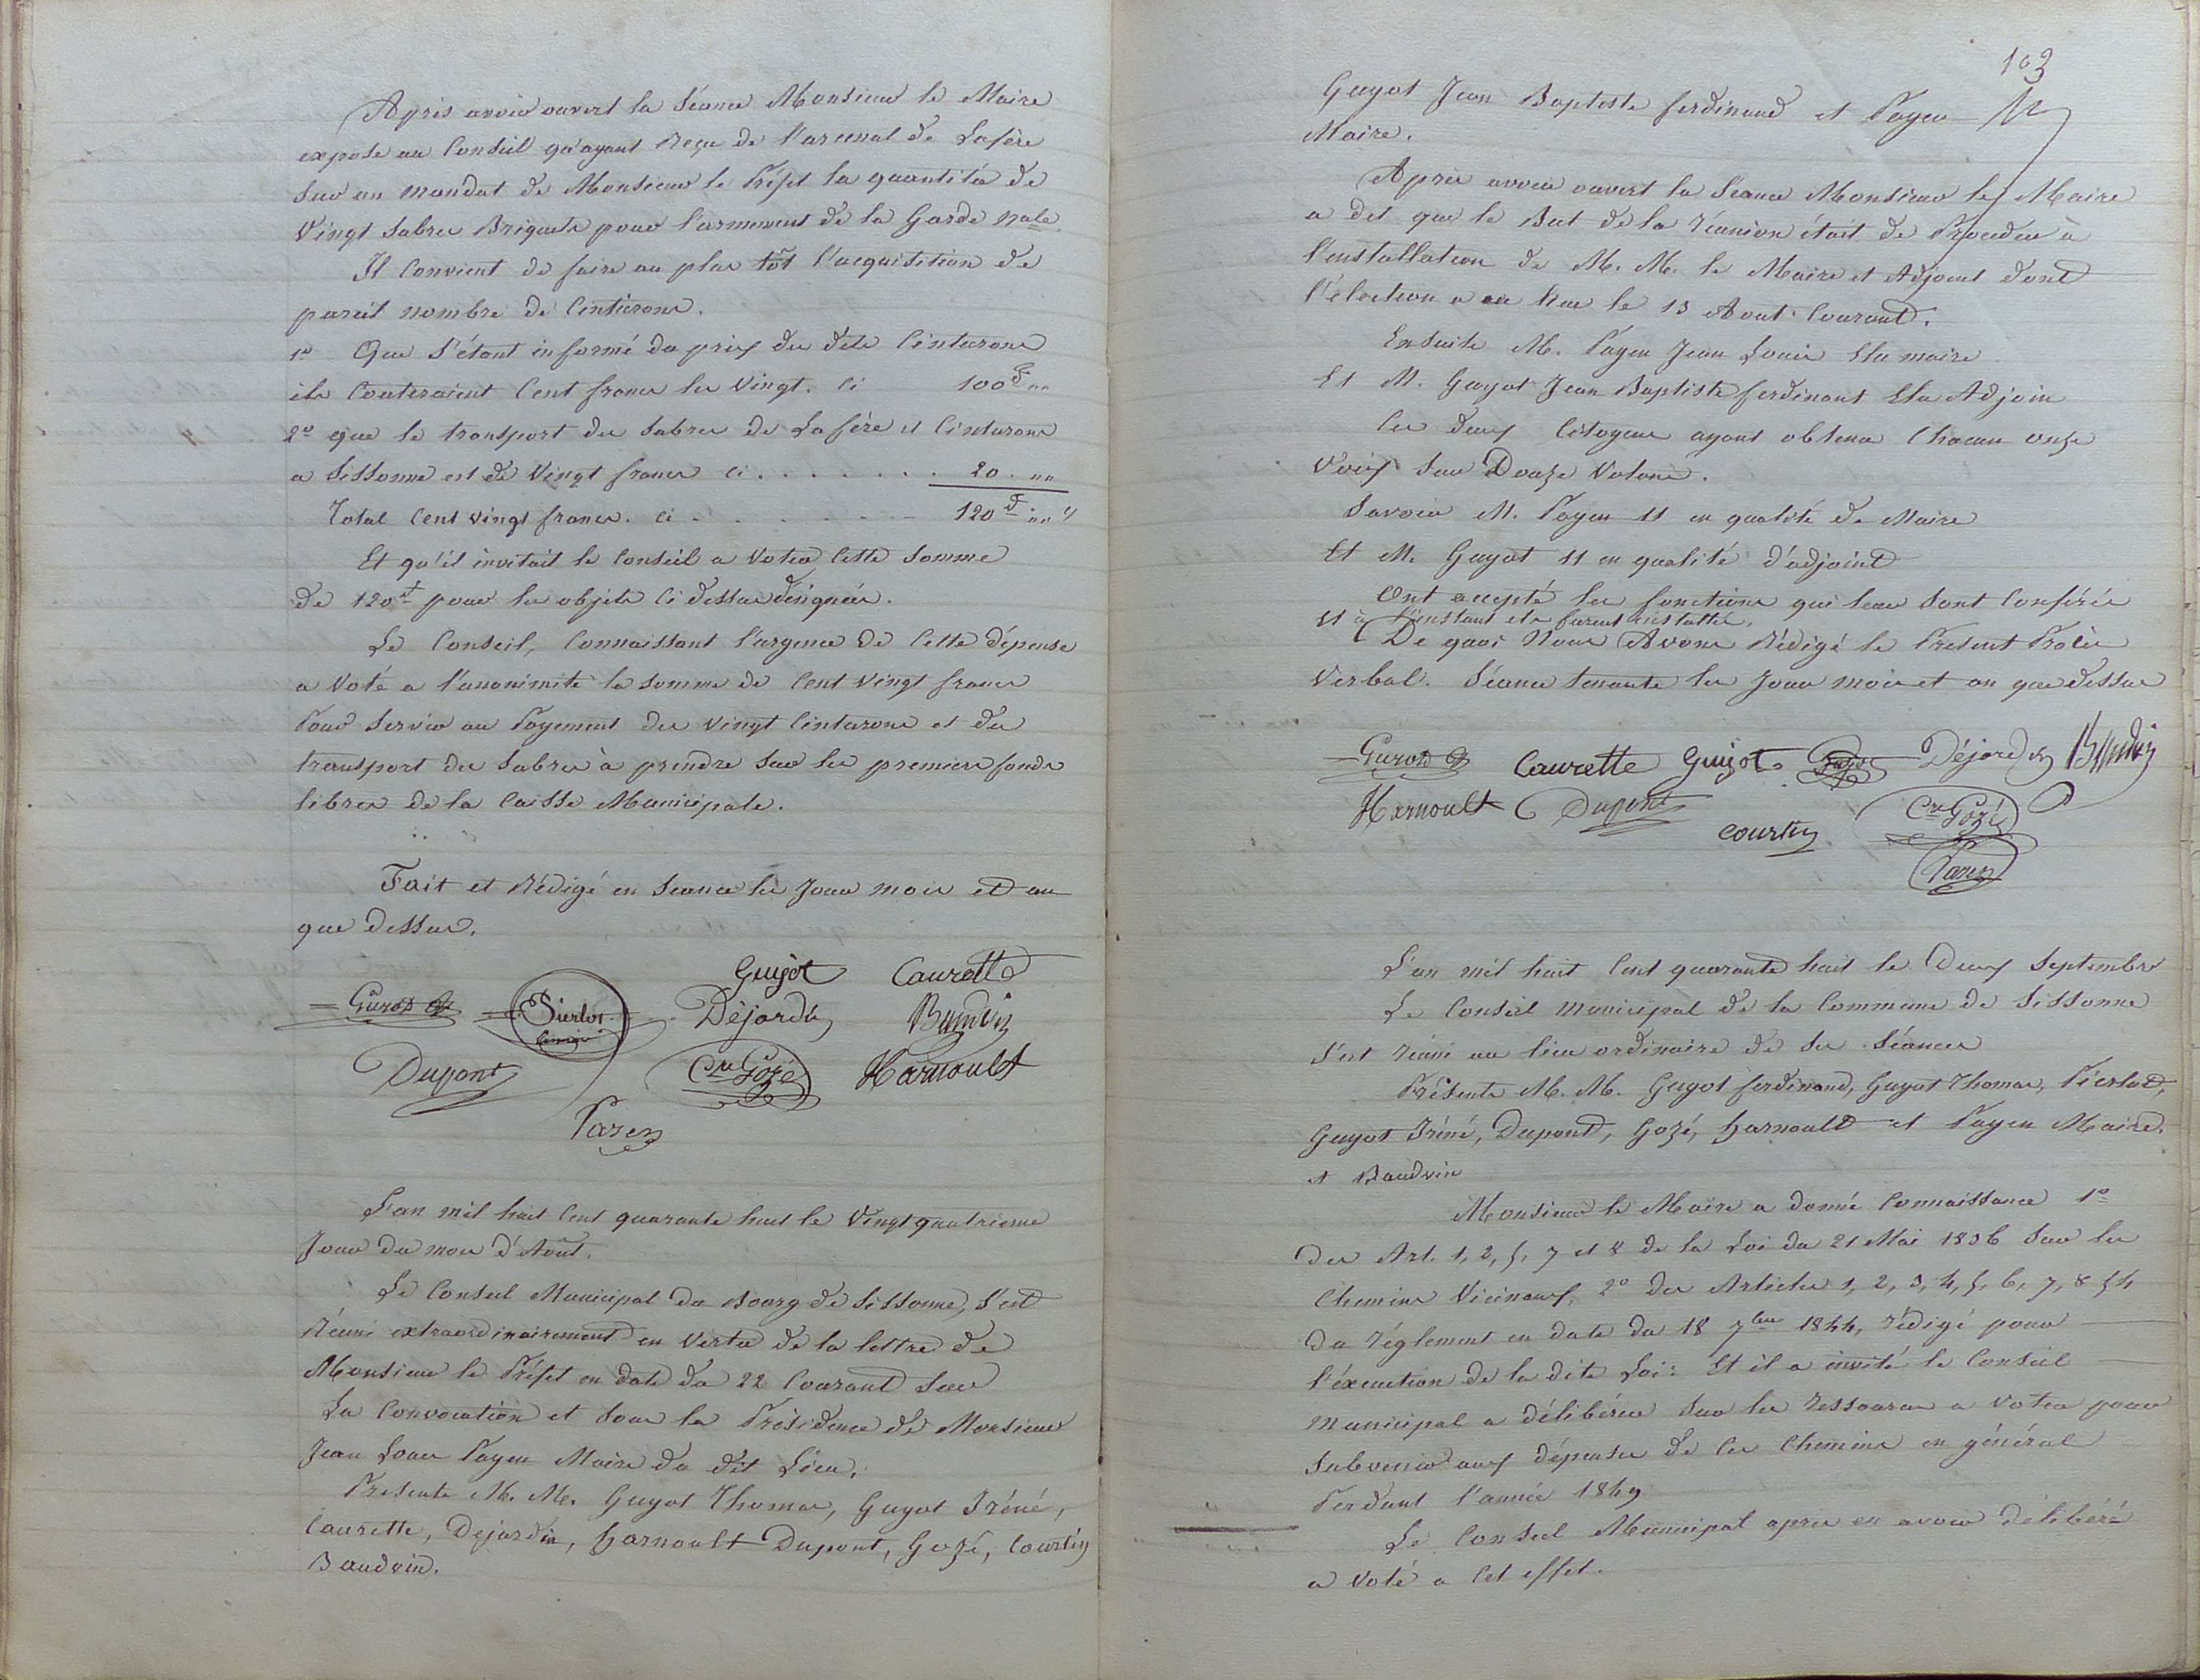 Après avoir ouvert la Séance Monsieur le Maire
expose au Conseil qu'ayant Reçu de l'arcenal de Lafère
Sur un mandat de Monsieur le Préfet la quantité de
Vingt Sabres Briquets pour l'armement de la Garde nale.
Il Convient de faire au plus tôt l'acquisition de
pareil nombre de Centurons.
1º Que S'étant informé du prix des dits Centurons
ils Couteraient Cent francs les Vingt. Ci 100 F „„
2º que le transport des Sabres de Lafère et Centurons
a Sissonne est de Vingt francs Ci . . . . . . . 20. „„
Total Cent vingt francs. Ci - . . . . . . - 120 F „„ "
Et qu'il invitait le Conseil a Voter Cette Somme
de 120 f pour les objets Ci dessus désignées.
Le Conseil, Connaissant l'urgence de Cette dépense
a Voté a l'unanimité la Somme de Cent Vingt francs
Pour Servir au Payement des Vingt Centurons et du
transport des Sabres à prendre Sur les premiers fonds
libres de la Caisse Municipale.
Fait et Rédigé en Séance les Jour mois et an
que dessus.
Guyot Caurette
Guyot F Pierlot Déjardin Baudvin
Dupont Cre Gozé Harnoult
Payen
L'an mil huit Cent quarante huit le Vingt quatrieme
Jour du mois d'Août.
Le Conseil Municipal du Bourg de Sissonne, S'est
Réuni extraordinairement en Vertu de la lettre de
Monsieur le Préfet en date du 22 Courant Sur
La Convocation et Sous la Présidence de Monsieur
Jean Louis Payen Maire du dit Lieu,
Presents M. M. Guyot Thomas, Guyot Iréné,
Caurette, Dejardin, harnoult Dupont, Gozé, Courtin
Baudvin.
103
Guyot Jean Baptiste ferdinand et Payen
Maire.
Apres avoir ouvert la Séance Monsieur le Maire
a dit que le But de la réunion était de Procéder à
l'installation de M. M. le Maire et Adjoint dont
l'élection a eu lieu le 13 Aout Courant.
Ensuite M. Payen Jean Louis Elu maire
Et M. Guyot Jean Baptiste ferdinant Elu Adjoin
Ces deux Citoyens ayant obtenu Chacun onze
Voix Sur Douze Votans.
Savoir M. Payen 11 en qualité de Maire
Et M. Guyot 11 en qualité d'adjoint
Ont accepté les fonctions qui leur Sont Conférés
et à l'instant ils furent installés.
De quoi Nous Avons Rédigé le Présent Procès
Verbal. Séance tenante les Jour mois et an que dessus
Guyot F Caurette Guyot Guyot Déjardin Baudvin
Harnoult Dupont Courtin Cre Gozé
Payen
L'an mil huit Cent quarante huit le Deux Septembre
Le Conseil municipal de la Commune de Sissonne
S'est réuni au lieu ordinaire de Ses Séances
Présents M. M. Guyot ferdinand, Guyot Thomas, Pierlot,
Guyot Iréné, Dupont, Gozé, harnoult et Payen Maire.
et Baudvin
Monsieur le Maire a donné Connaissance 1º
des Art. 1, 2, 5, 7 et 8 de la Loi du 21 Mai 1836 Sur les
Chemins Vicinaux, 2º des Articles 1, 2, 3, 4, 5, 6, 7, 8 54
du réglement en date du 18 7bre 1844, rédigé pour
l'éxecution de la dite Loi: Et il a invité le Conseil
municipal a délibérer Sur les ressources a Voter pour
Subvenir aux dépenses de Ces Chemins en général
Pendant l'année 1849
Le Conseil Municipal apres en avoir délibéré
a Voté a Cet effet.